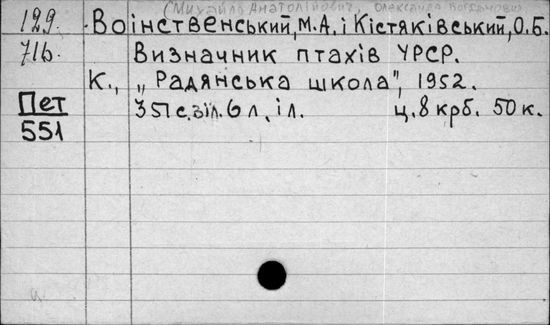 (Михайль Анатолійович, Олександр Богданович)
129. Воінственський, М.А. і Кістяківський, О.Б.
71Б. Визначник птахів УРСР.
К., „Радянська школа", 1952.
Пет 351 с. зіл. 6 л. іл. ц. 8 крб. 50 к.
551